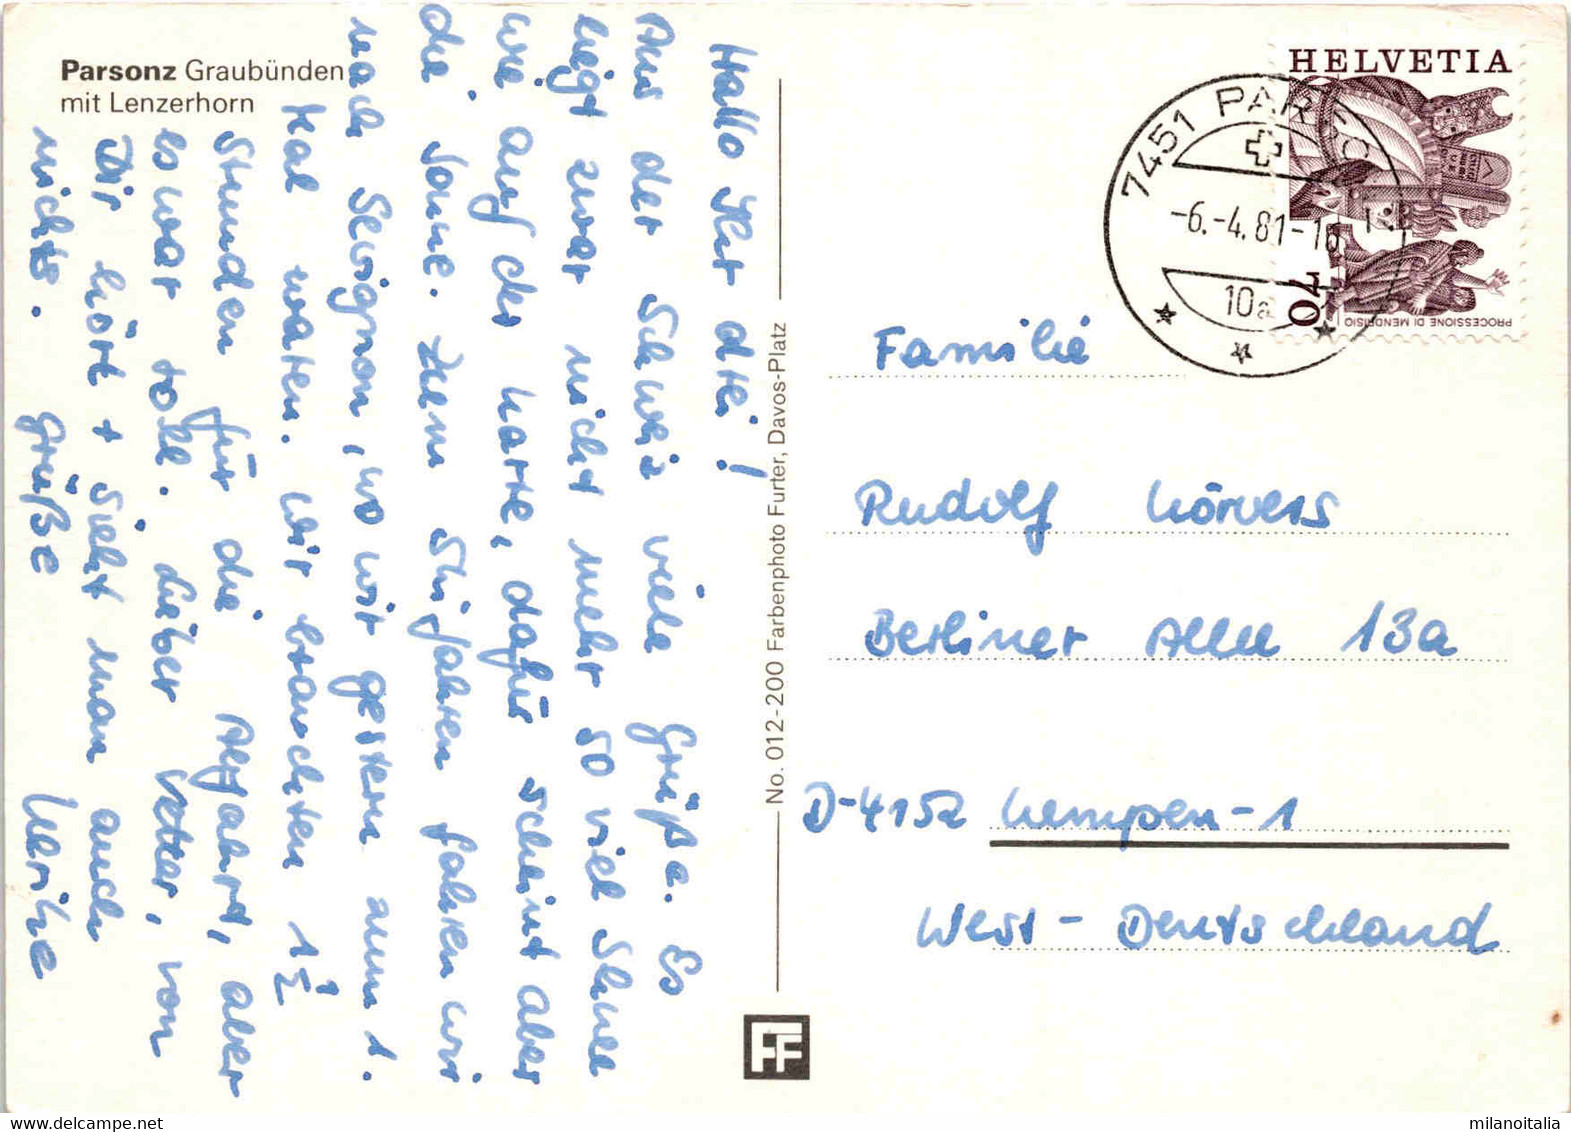 Parsonz Graubünden
mit Lenzerhorn
Hallo Ihr drei!
Aus der Schweiz viele Grüße. Es
liegt zwar nicht mehr so viel Schnee
wie auf der Karte, dafür scheint aber
die Sonne. Zum Skifahren fahren wir
nach Savognon, wo wir gestern zum 1.
Mal waren. Wir brauchten 1½
Stunden für die Abfahrt, aber
es war toll. Lieber Vetter, von
Dir hört + sieht man auch
nichts. Grüße Ulrike
No. 012-200 Farbenphoto Furter, Davos-Platz
FF
HELVETIA
70
PROCESSIONE DI MENDRISIO
7451 PARSONZ
-6.-4.81-18
10a
Familie
Rudolf Körvers
Berliner Allee 13a
D-4152 Kempen-1
West-Deutschland
milanoitalia
www.delcampe.net